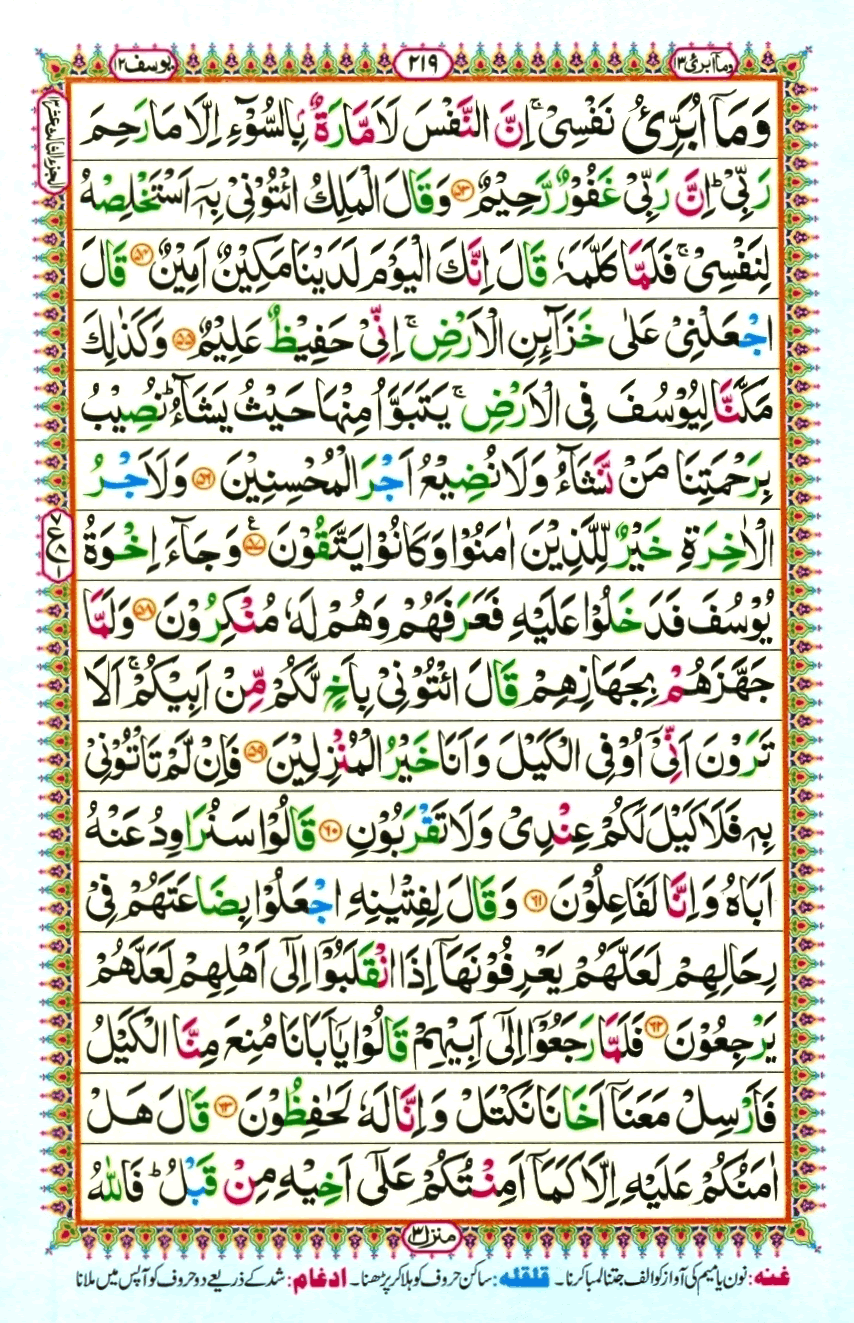 وماابرئ١٣
٢١٩
يوسف١٢
وَمَاۤ اُبَرِّئُ نَفۡسِىۡ‌ۚ اِنَّ النَّفۡسَ لَاَمَّارَةٌۢ بِالسُّوۡٓءِ اِلَّا مَا رَحِمَ
رَبِّىۡ ؕ اِنَّ رَبِّىۡ غَفُوۡرٌ رَّحِيۡمٌ ۵۳ وَقَالَ الۡمَلِكُ ائۡتُوۡنِىۡ بِهٖۤ اَسۡتَخۡلِصۡهُ
لِنَفۡسِىۡ‌ۚ فَلَمَّا كَلَّمَهٗ قَالَ اِنَّكَ الۡيَوۡمَ لَدَيۡنَا مَكِيۡنٌ اَمِيۡنٌ ۵۴ قَالَ
اجۡعَلۡنِىۡ عَلٰى خَزَآئِنِ الۡاَرۡضِ‌ۚ اِنِّىۡ حَفِيۡظٌ عَلِيۡمٌ ۵۵ وَكَذٰلِكَ
مَكَّنَّا لِيُوۡسُفَ فِى الۡاَرۡضِ‌ۚ يَتَبَوَّاُ مِنۡهَا حَيۡثُ يَشَآءُ‌ ؕ نُصِيۡبُ
بِرَحۡمَتِنَا مَنۡ نَّشَآءُ‌ وَلَا نُضِيۡعُ اَجۡرَ الۡمُحۡسِنِيۡنَ ۵۶ وَلَاَجۡرُ
الۡاٰخِرَةِ خَيۡرٌ لِّلَّذِيۡنَ اٰمَنُوۡا وَكَانُوۡا يَتَّقُوۡنَ ۵۷ ع وَجَآءَ اِخۡوَةُ
يُوۡسُفَ فَدَخَلُوۡا عَلَيۡهِ فَعَرَفَهُمۡ وَهُمۡ لَهٗ مُنۡكِرُوۡنَ ۵۸ وَلَمَّا
جَهَّزَهُمۡ بِجَهَازِهِمۡ قَالَ ائۡتُوۡنِىۡ بِاَخٍ لَّكُمۡ مِّنۡ اَبِيۡكُمۡ‌ۚ اَلَا
تَرَوۡنَ اَنِّىۡۤ اُوۡفِى الۡكَيۡلَ وَاَنَا خَيۡرُ الۡمُنۡزِلِيۡنَ ۵۹ فَاِنۡ لَّمۡ تَاۡتُوۡنِىۡ
بِهٖ فَلَا كَيۡلَ لَكُمۡ عِنۡدِىۡ وَلَا تَقۡرَبُوۡنِ ۶۰ قَالُوۡا سَنُرَاوِدُ عَنۡهُ
اَبَاهُ وَاِنَّا لَفَاعِلُوۡنَ ۶۱ وَقَالَ لِفِتۡيٰنِهِ اجۡعَلُوۡا بِضَاعَتَهُمۡ فِىۡ
رِحَالِهِمۡ لَعَلَّهُمۡ يَعۡرِفُوۡنَهَاۤ اِذَا انْقَلَبُوۡۤا اِلٰٓى اَهۡلِهِمۡ لَعَلَّهُمۡ
يَرۡجِعُوۡنَ ۶۲ فَلَمَّا رَجَعُوۡۤا اِلٰٓى اَبِيۡهِمۡ قَالُوۡا يٰۤاَبَانَا مُنِعَ مِنَّا الۡكَيۡلُ
فَاَرۡسِلۡ مَعَنَاۤ اَخَانَا نَكۡتَلۡ وَاِنَّا لَهٗ لَحٰـفِظُوۡنَ ۶۳ قَالَ هَلۡ
اٰمَنُكُمۡ عَلَيۡهِ اِلَّا كَمَاۤ اَمِنۡتُكُمۡ عَلٰٓى اَخِيۡهِ مِنۡ قَبۡلُ‌ ؕ فَاللّٰهُ
منزل٣
غنه: نون یا میم کی آواز کو الف جتنا لمبا کرنا۔ قلقله: ساکن حروف کو ہلا کر پڑھنا۔ ادغام: شد کے ذریعے دو حروف کو آپس میں ملانا